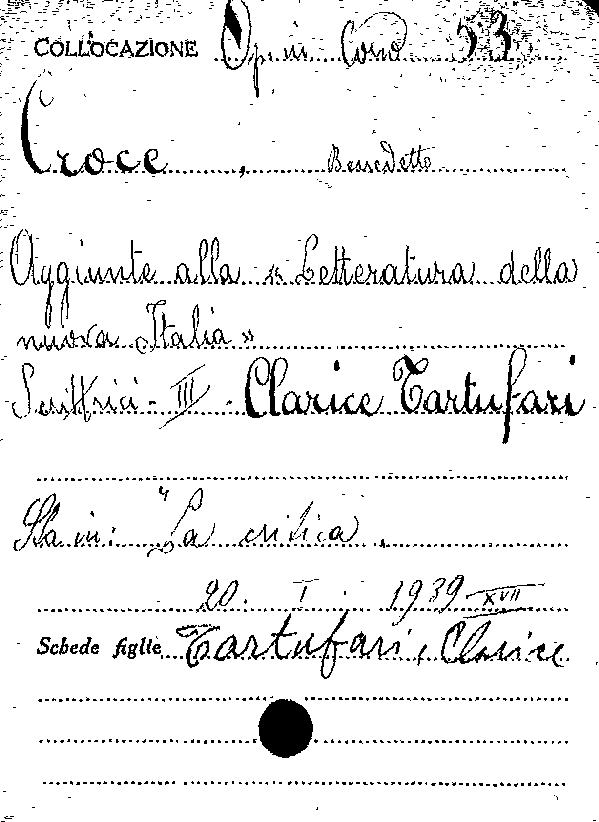 COLLOCAZIONE Op. in Cons 53
Croce, Benedetto
Aggiunte alla « Letteratura della
nuova Italia »
Scrittrici - III - Clarice Tartufari
Sta in: "La critica,
20. I. 1939 XVII
Schede figlie Tartufari, Clarice